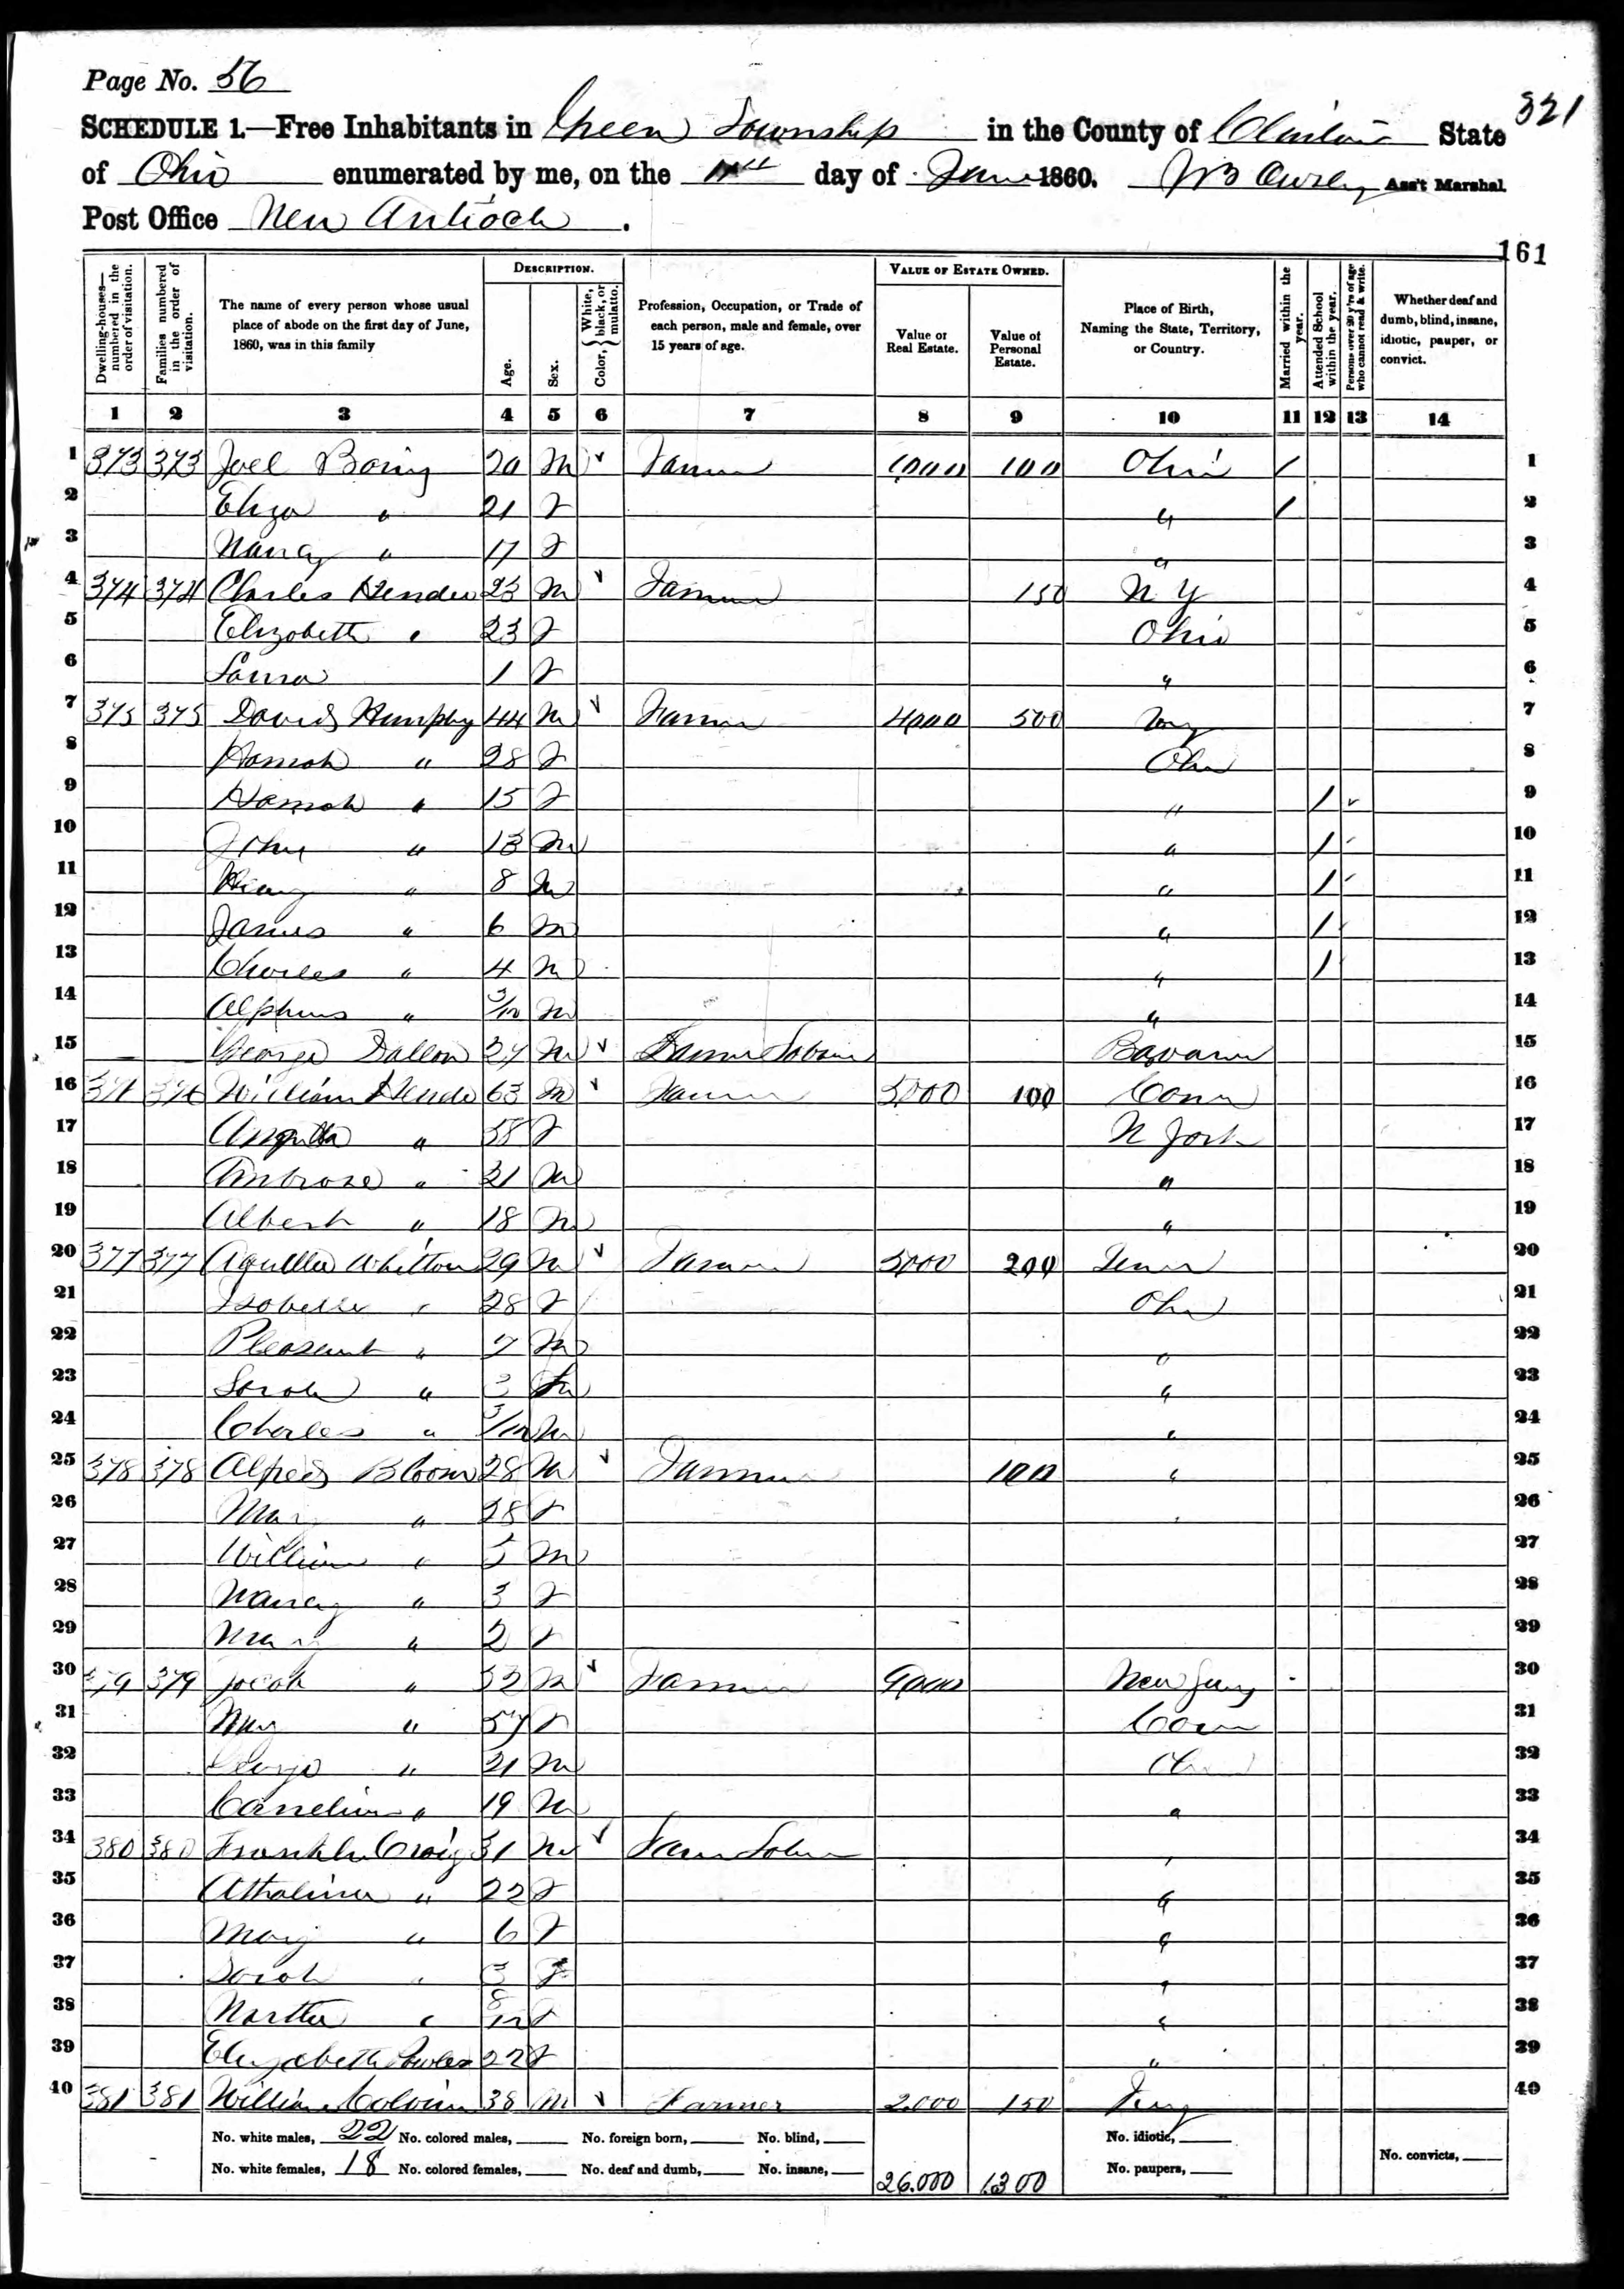 Page No. 56
321
SCHEDULE 1.—Free Inhabitants in Green Township in the County of Clinton State
of Ohio enumerated by me, on the day of June 1860. Ass't Marshal.
Post Office New Antioch.
161
Dwelling-houses—numbered in the order of visitation.
Families numbered in the order of visitation.
The name of every person whose usual place of abode on the first day of June, 1860, was in this family
DESCRIPTION.
Age.
Sex.
Color, { White, black, or mulatto.
Profession, Occupation, or Trade of each person, male and female, over 15 years of age.
VALUE OF ESTATE OWNED.
Value of Real Estate.
Value of Personal Estate.
Place of Birth, Naming the State, Territory, or Country.
Married within the year.
Attended School within the year.
Persons over 20 y'rs of age who cannot read & write.
Whether deaf and dumb, blind, insane, idiotic, pauper, or convict.
1 2 3 4 5 6 7 8 9 10 11 12 13 14
1 373 373 Joel 20 M Farmer 1000 100 Ohio / 1
2 Eliza " 21 F " / 2
3 Nancy " 17 F " 3
4 374 374 Charles 23 M Farmer 150 N Y 4
5 Elizabeth " 23 F Ohio 5
6 Laura 1 F " 6
7 375 375 David Humphry 44 M Farmer 4000 500 7
8 Hannah " 28 F Ohio 8
9 Hannah " 15 F " / 9
10 John " 13 M " / 10
11 " 8 M " / 11
12 James " 6 M " / 12
13 Charles " 4 M " / 13
14 Alpheus " 3/12 M " 14
15 George 27 M Bavaria 15
16 William 63 M Farmer 5000 100 Conn 16
17 " 58 F N York 17
18 Ambrose " 21 M " 18
19 Albert " 18 M " 19
20 377 377 Aquilla Whitton 29 M Farmer 5000 200 Tenn 20
21 Isabelle " 28 F Ohio 21
22 Pleasant " 7 M " 22
23 Sarah " 3 " 23
24 Charles " M " 24
25 378 378 Alfred Bloom 28 M Farmer 100 " 25
26 Mary " 28 F " 26
27 William " 5 M 27
28 Nancy " 3 F 28
29 Mary " 2 F 29
30 379 379 Jacob " M Farmer 9000 New Jersey 30
31 Mary " 57 F Conn 31
32 George " 21 M Ohio 32
33 Cornelius " 19 M " 33
34 380 380 Franklin Craig 31 M " 34
35 " 22 F " 35
36 Mary " 6 F " 36
37 Sarah " 3 F " 37
38 Martha " 8/12 F " 38
39 Elizabeth 22 F " 39
40 381 381 William Colvin 38 M Farmer 2.000 150 40
No. white males, 22 No. colored males, No. foreign born, No. blind, No. idiotic,
No. white females, 18 No. colored females, No. deaf and dumb, No. insane, 26.000 1300 No. paupers, No. convicts,